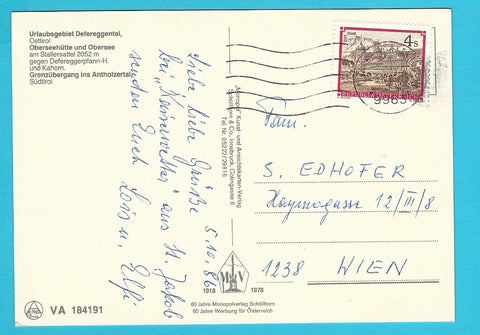 Urlaubsgebiet Defereggental,
Osttirol
Oberseehütte und Obersee
am Stallersattel 2052 m
gegen Defereggerpfann-H.
und Kahorn.
Grenzübergang ins Antholzertal,
Südtirol
5.10.86
Liebe liebe Grüße
bei "Kaiserwetter" aus St. Jakob
senden Euch Lois u. Elfi
Monopol, Kunst- und Ansichtskarten-Verlag
Schöllhorn & Co, Innsbruck,
Tel. Nr. 05222/29816
1918 1978
60 Jahre Monopolverlag Schöllhorn
60 Jahre Werbung für Österreich
VA 184191
4 S
REPUBLIK ÖSTERREICH
Fam.
S. EDHOFER
Haymogasse 12/III/8
1238 WIEN